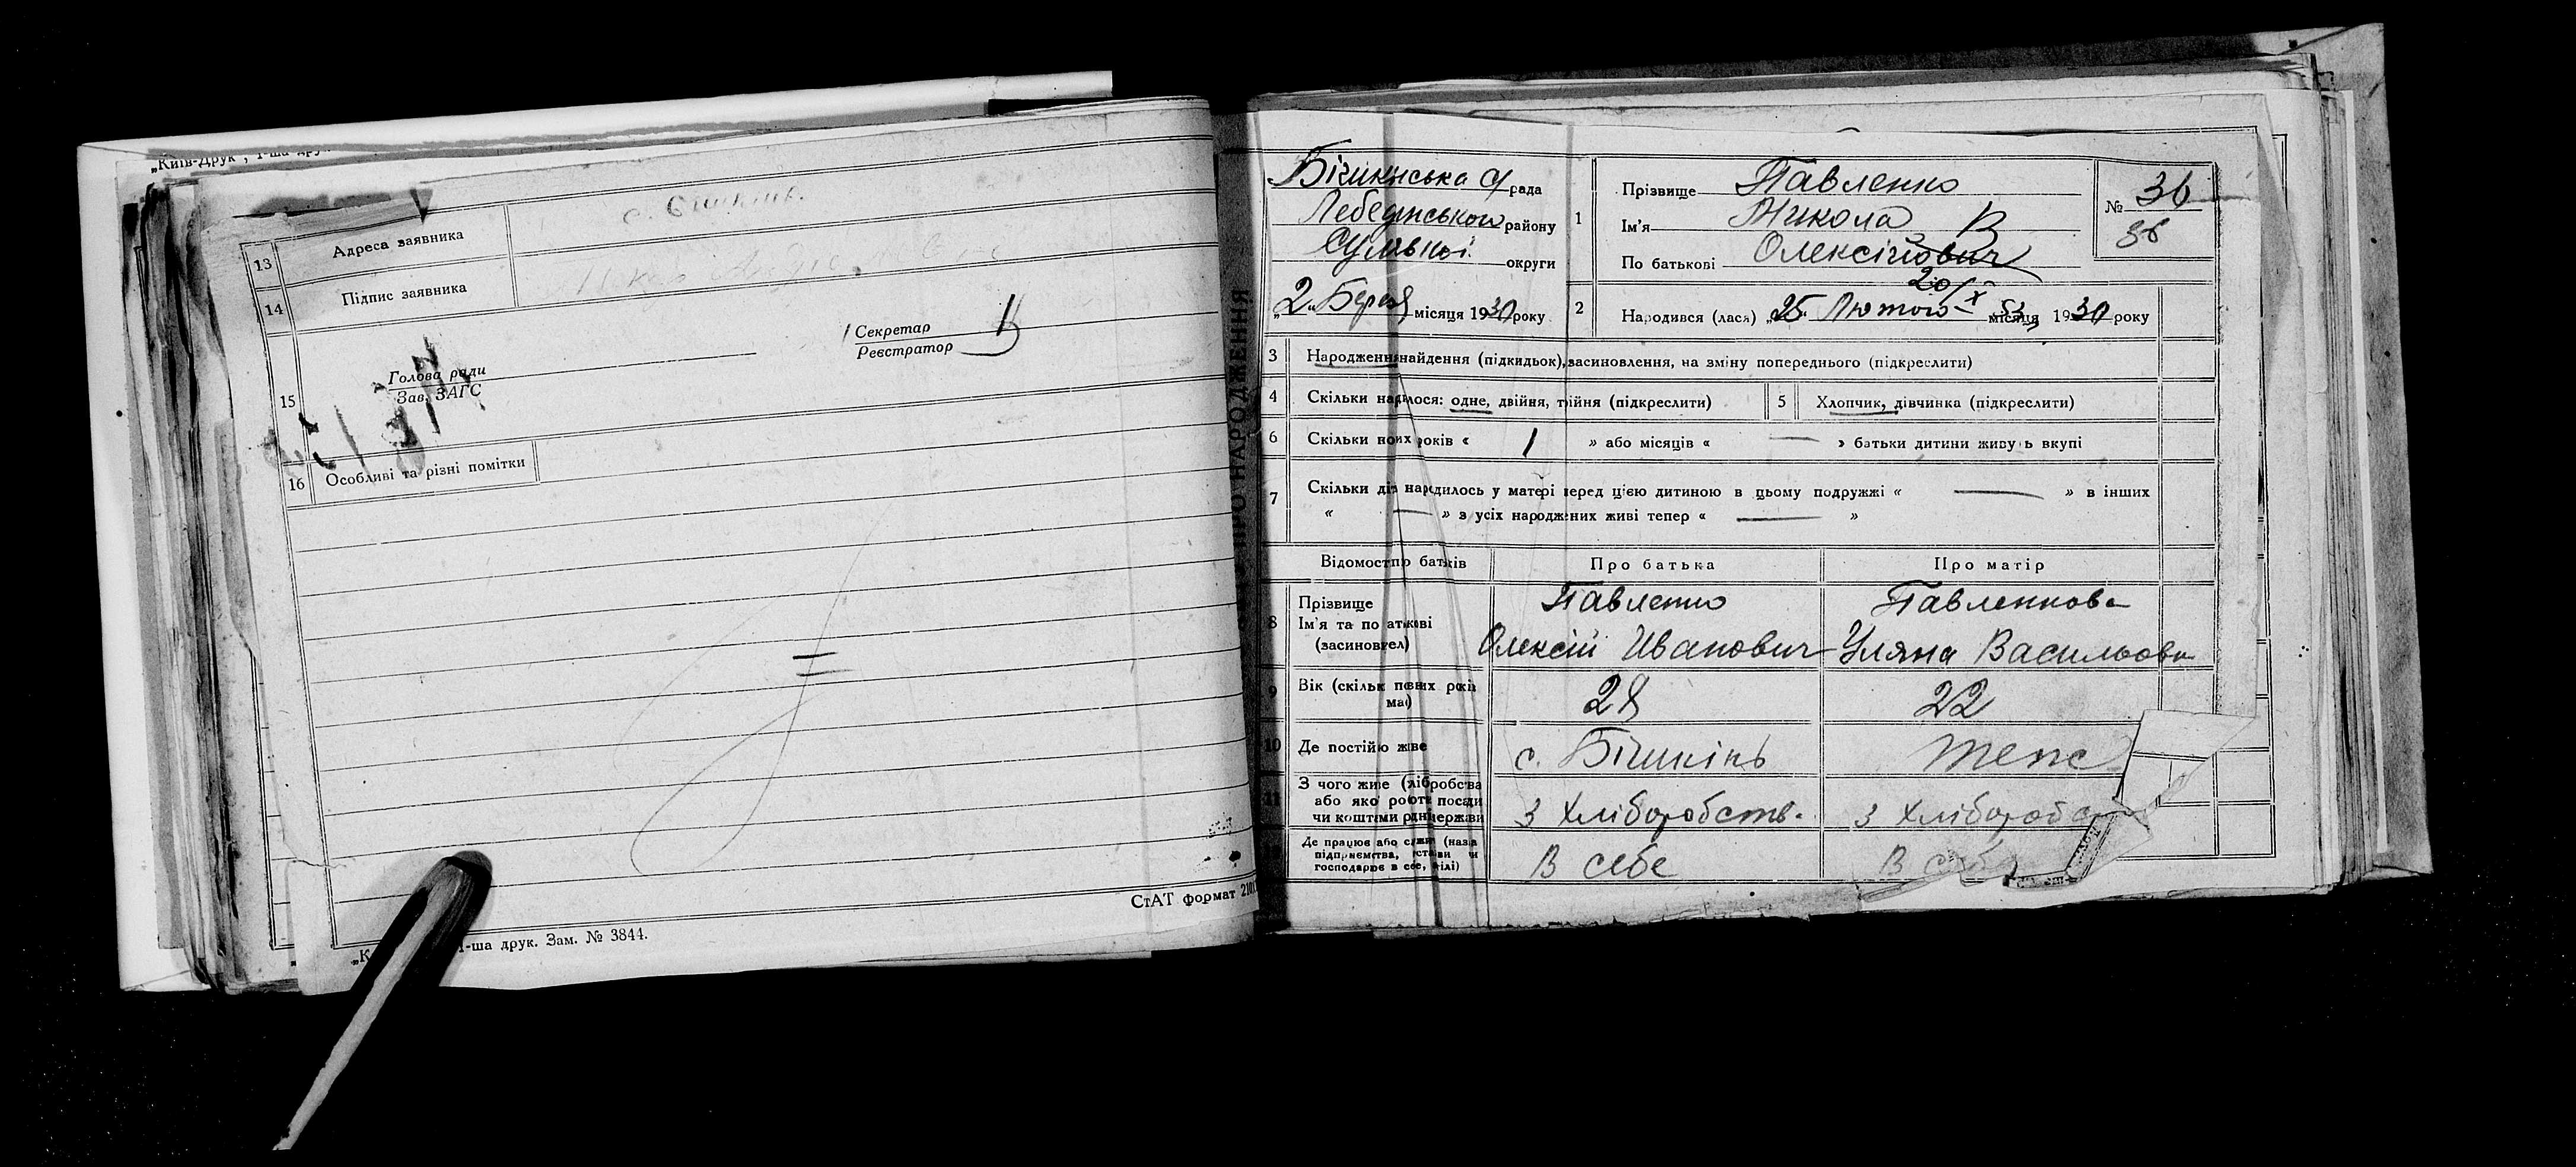 „Київ-Друк", 1-ша
13 Адреса заявника с. Бішкінь.
14 Підпис заявника
Секретар
Реєстратор
15 Голова ради
Зав. ЗАГС
16 Особливі та різні помітки
СтАТ формат 210
1-ша друк. Зам. № 3844.
ПРО НАРОДЖЕННЯ
Бішкінська с/рада
Лебединського району
Сумської округи
„2" Березня місяця 1930 року
1 Прізвище Павленко
Ім'я Микола
По батькові Олексійович
№ 36
36
20/X 53
2 Народився (лася) „25" Лютого місяця 1930 року
3 Народження, знайдення (підкидьок), засиновлення, на зміну попереднього (підкреслити)
4 Скільки народилося: одне, двійня, трійня (підкреслити) 5 Хлопчик, дівчинка (підкреслити)
6 Скільки повних років « 1 » або місяців « — » батьки дитини живуть вкупі
7 Скільки дітей народилось у матері перед цією дитиною в цьому подружжі « — » в інших
« — » з усіх народжених живі тепер « — »
Відомості про батьків Про батька Про матір
8 Прізвище Павленко Павленкова
Ім'я та по батькові
(засиновител) Олексій Иванович Уляна Васильовн
9 Вік (скільки повних років має) 28 22
10 Де постійно живе с. Бішкінь теж
11 З чого живе (хліборобства або якої роботи, посади чи коштами рідні, держави З Хліборобств. З Хлібороб
Де працює або служить (назва підприємства, установи чи господарює в себе, в сілі) В себе В себе